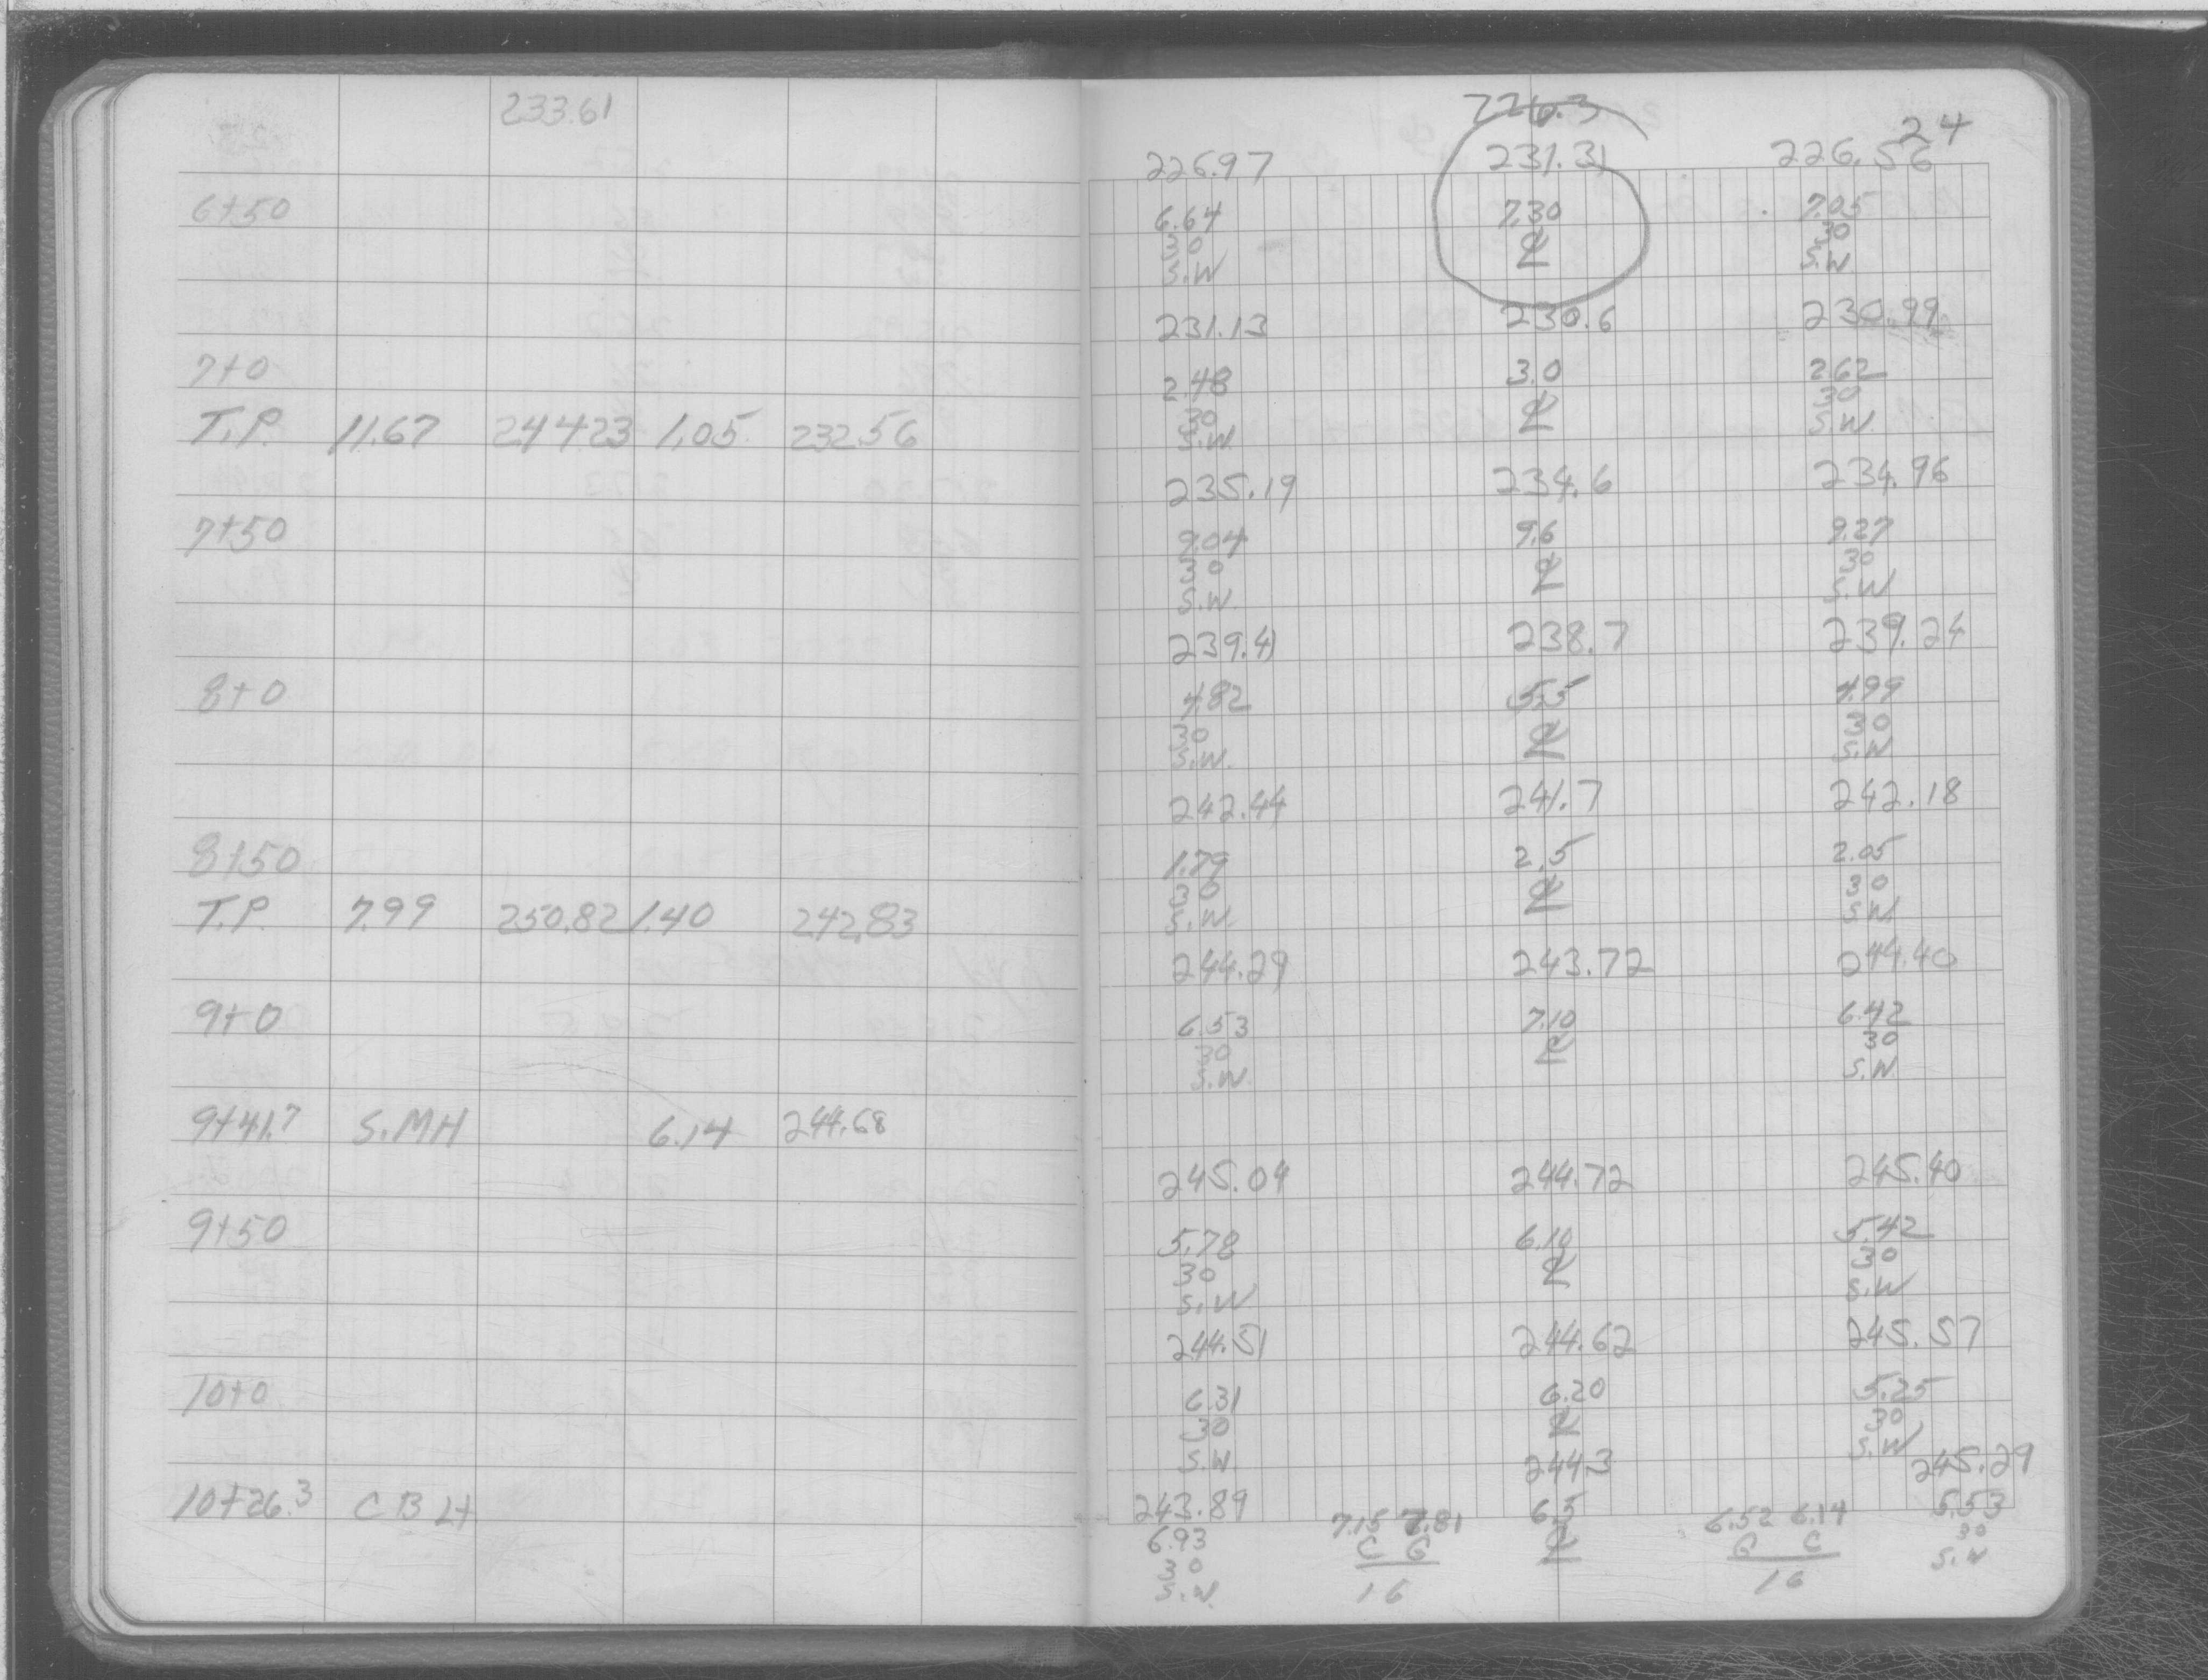 233.61
6+50
7+0
T.P. 11.67 244.23 1.05 232.56
7+50
8+0
8+50
T.P. 7.99 250.82 1.40 242.83
9+0
9+41.7 S.MH 6.14 244.68
9+50
10+0
10+26.3 CB Lt
24
226.3
226.97 231.31 226.56
6.64 7.30 7.05
30 ℄ 30
S.W S.W
231.13 230.6 230.99
2.48 3.0 2.62
30 ℄ 30
S.W. S.W.
235.19 234.6 234.96
9.04 9.6 9.27
30 ℄ 30
S.W. S.W
239.41 238.7 239.24
4.82 5.5 4.99
30 ℄ 30
S.W. S.W
242.44 241.7 242.18
1.79 2.5 2.05
30 ℄ 30
S.W. S.W.
244.29 243.72 244.40
6.53 7.10 6.42
30 ℄ 30
S.W. S.W.
245.04 244.72 245.40
5.78 6.10 5.42
30 ℄ 30
S.W S.W
244.51 244.62 245.57
6.31 6.20 5.25
30 ℄ 30
S.W. S.W
243.89 244.3 245.29
6.93 7.15 7.81 6.5 6.52 6.14 5.53
30 C G ℄ G C 30
S.W. 16 16 S.W